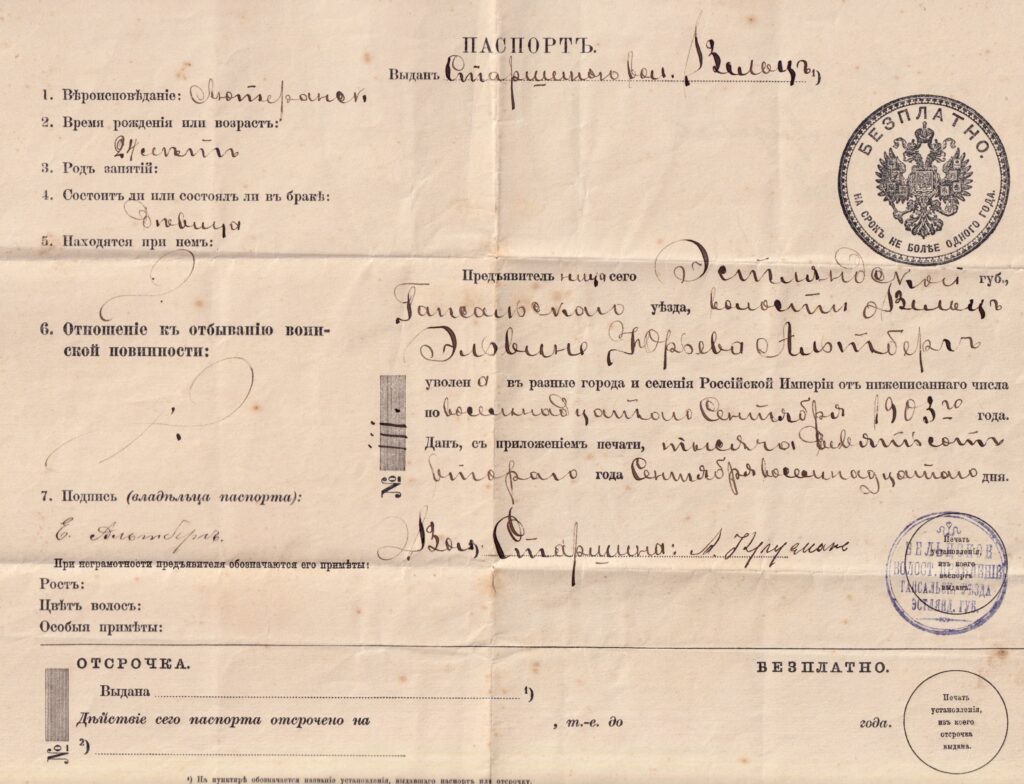 ПАСПОРТЪ.
Выданъ Старшиною вол. Вельцъ,
1. Вѣроисповѣданіе: Лютеранск
2. Время рожденія или возрастъ:
24 лѣтъ
3. Родъ занятій:
4. Состоитъ ли или состоялъ ли въ бракѣ:
Дѣвица
5. Находятся при немъ:
6. Отношеніе къ отбыванію воин-
ской повинности:
7. Подпись (владѣльца паспорта):
Е. Альтбергъ.
При неграмотности предъявителя обозначаются его примѣты:
Ростъ:
Цвѣтъ волосъ:
Особыя примѣты:
БЕЗПЛАТНО.
НА СРОКЪ НЕ БОЛѢЕ ОДНОГО ГОДА.
Предъявительница сего Эстляндской губ.,
Гапсальскаго уѣзда, волости Вельцъ
Эльвине Юрьева Альтбергъ
уволена въ разные города и селенія Россійской Имперіи отъ нижеписаннаго числа
по восемнадцатаго Сентября 1903 го года.
Данъ, съ приложеніемъ печати, тысяча девятьсот
втораго года Сентября восемнадцатаго дня.
№
Вол Старшина:
Печать
установленія,
изъ коего
паспортъ
выданъ.
ВОЛОСТ. ПРАВЛЕНІЕ
ГАПСАЛЬСК. УѢЗДА
ЭСТЛЯНД. ГУБ.
ОТСРОЧКА.
БЕЗПЛАТНО.
Выдана ¹)
Дѣйствіе сего паспорта отсрочено на , т.-е. до года.
²)
№
Печать
установленія,
изъ коего
отсрочка
выдана.
¹) На пунктирѣ обозначается названіе установленія, выдавшаго паспортъ или отсрочку.